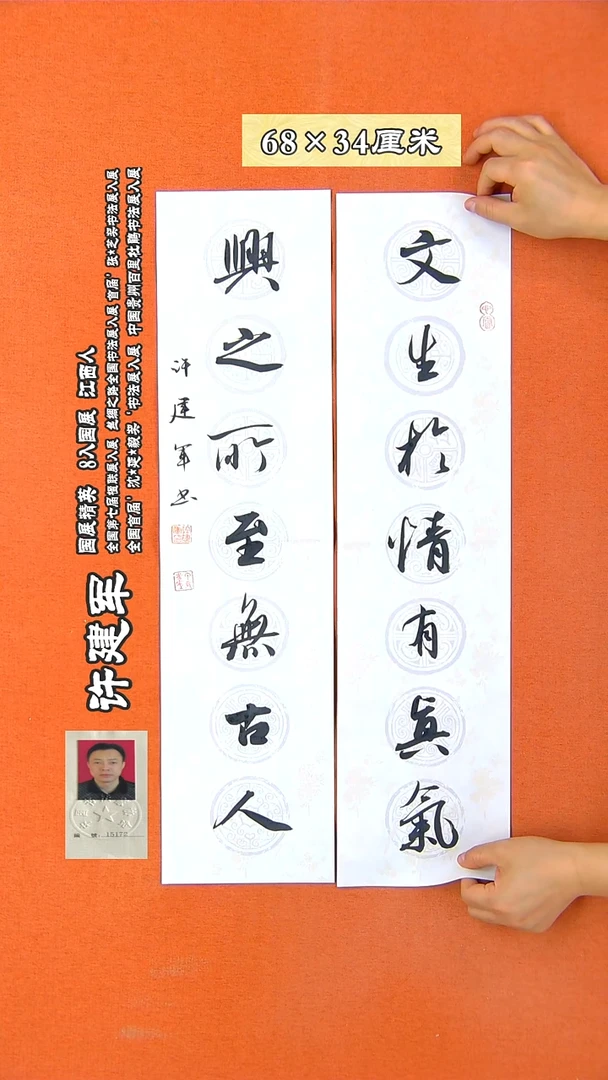 68×34厘米
文生於情有真氣
興之所至無古人
许建军书
许建军
国展精英 8入国展 江西人
全国第七届楹联展入展 丝绸之路全国书法展入展 首届'张★芝奖书法展入展
全国首届'沈★延★毅奖'书法展入展 中国贵州百里杜鹃书法展入展
编 号: 15172